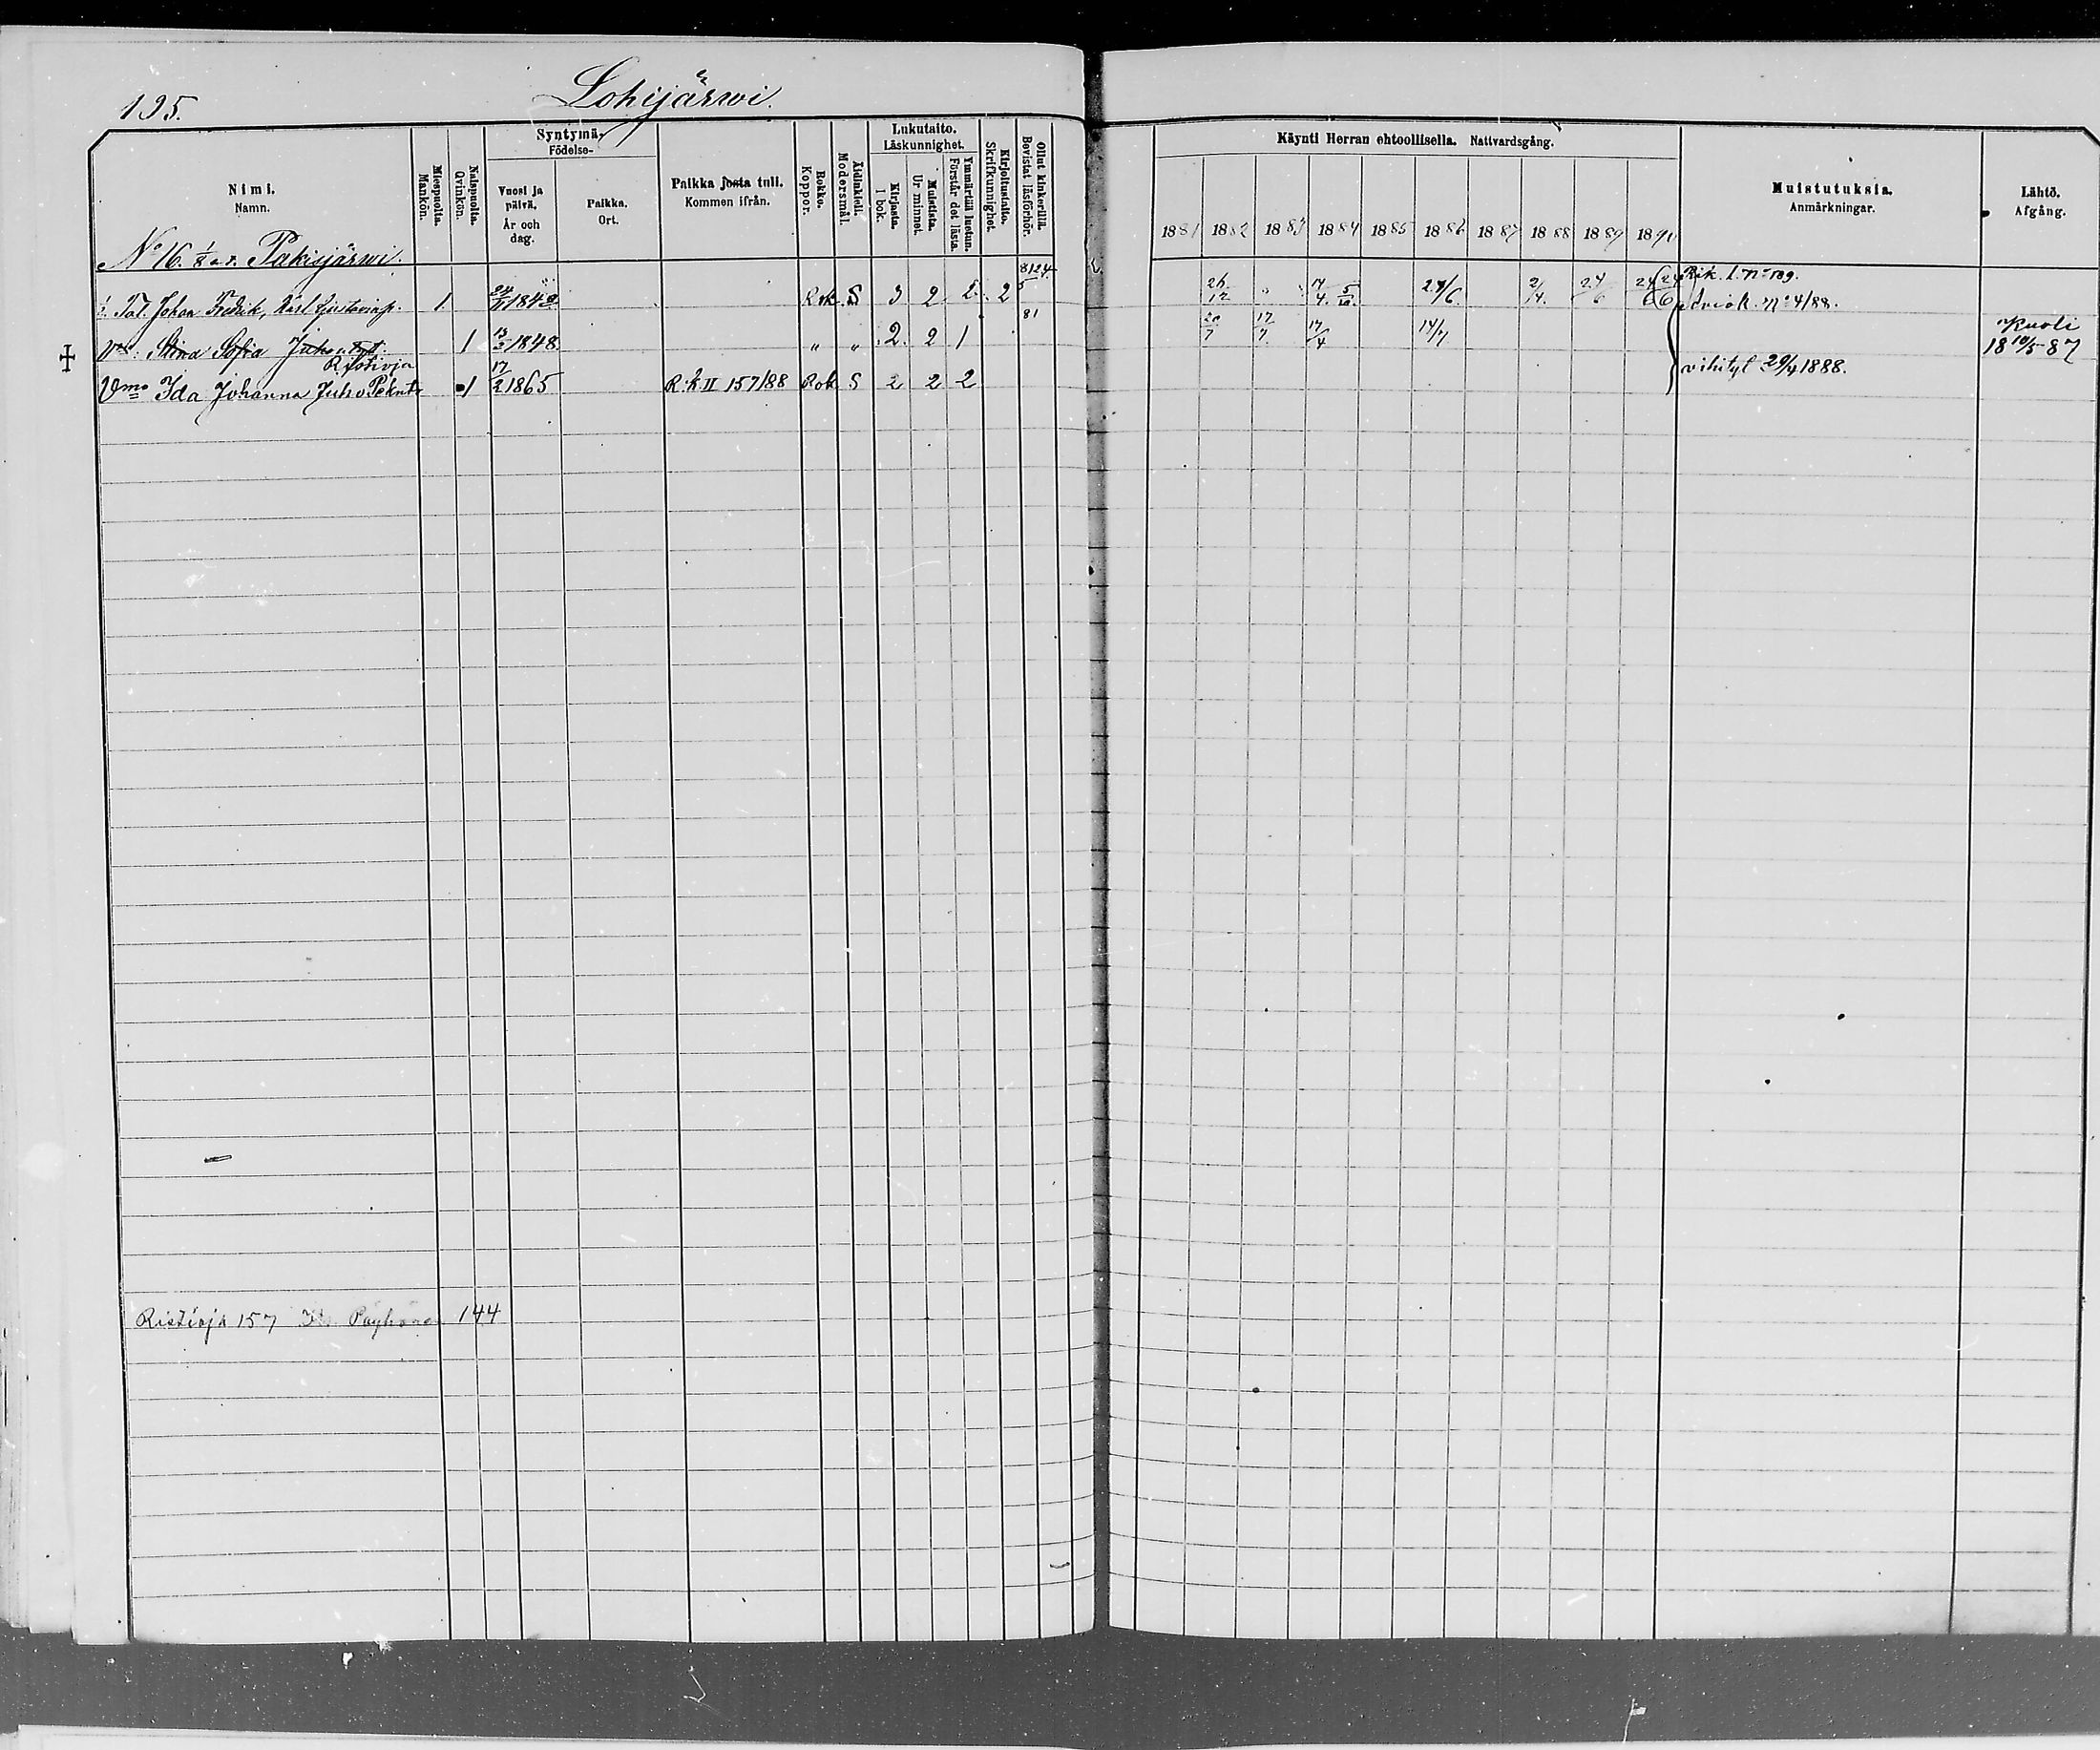 195.
Lohijärwi.
Nimi.
Namn.
Miespuolia.
Mankön.
Naispuolia.
Qvinkön.
Syntymä-
Födelse-
Vuosi ja
päivä.
År och
dag.
Paikka.
Ort.
Paikka josta tuli.
Kommen ifrån.
Rokko.
Koppor.
Äidinkieli.
Modersmål.
Lukutaito.
Läskunnighet.
Kirjasta.
I bok.
Muistista.
Ur minnet.
Ymmärtää luetun.
Förstår det lästa.
Kirjoitustaito.
Skrifkunnighet.
Ollut kinkerillä.
Bevistat läsförhör.
Käynti Herran ehtoollisella. Nattvardsgång.
1881 1882 1883 1884 1885 1886 1887 1888 1889 1890
Muistutuksia.
Anmärkningar.
Lähtö.
Afgång.
No 16. 1/8 Pakisjärwi.
Tal. Johan Fredrik, Karl 1 24/11 184 Rok S 3 2 2 2 26/12 14/4 5/10 24/6 2/4 24/6 24/6 24/6 Rik. l. No 109.
aviok. No 4/88.
Vmo Stina Sofia 1 13/3 1848 " " 2 2 1 81 20/7 17/7 17/4 14/7 Kuoli
18 10/5 87
Ristioja
Vmo Ida Johanna Juho 1 17/2 1865 R.k II 157/88 Rok S 2 2 2 vihityt 29/4 1888.
Ristioja 157 144